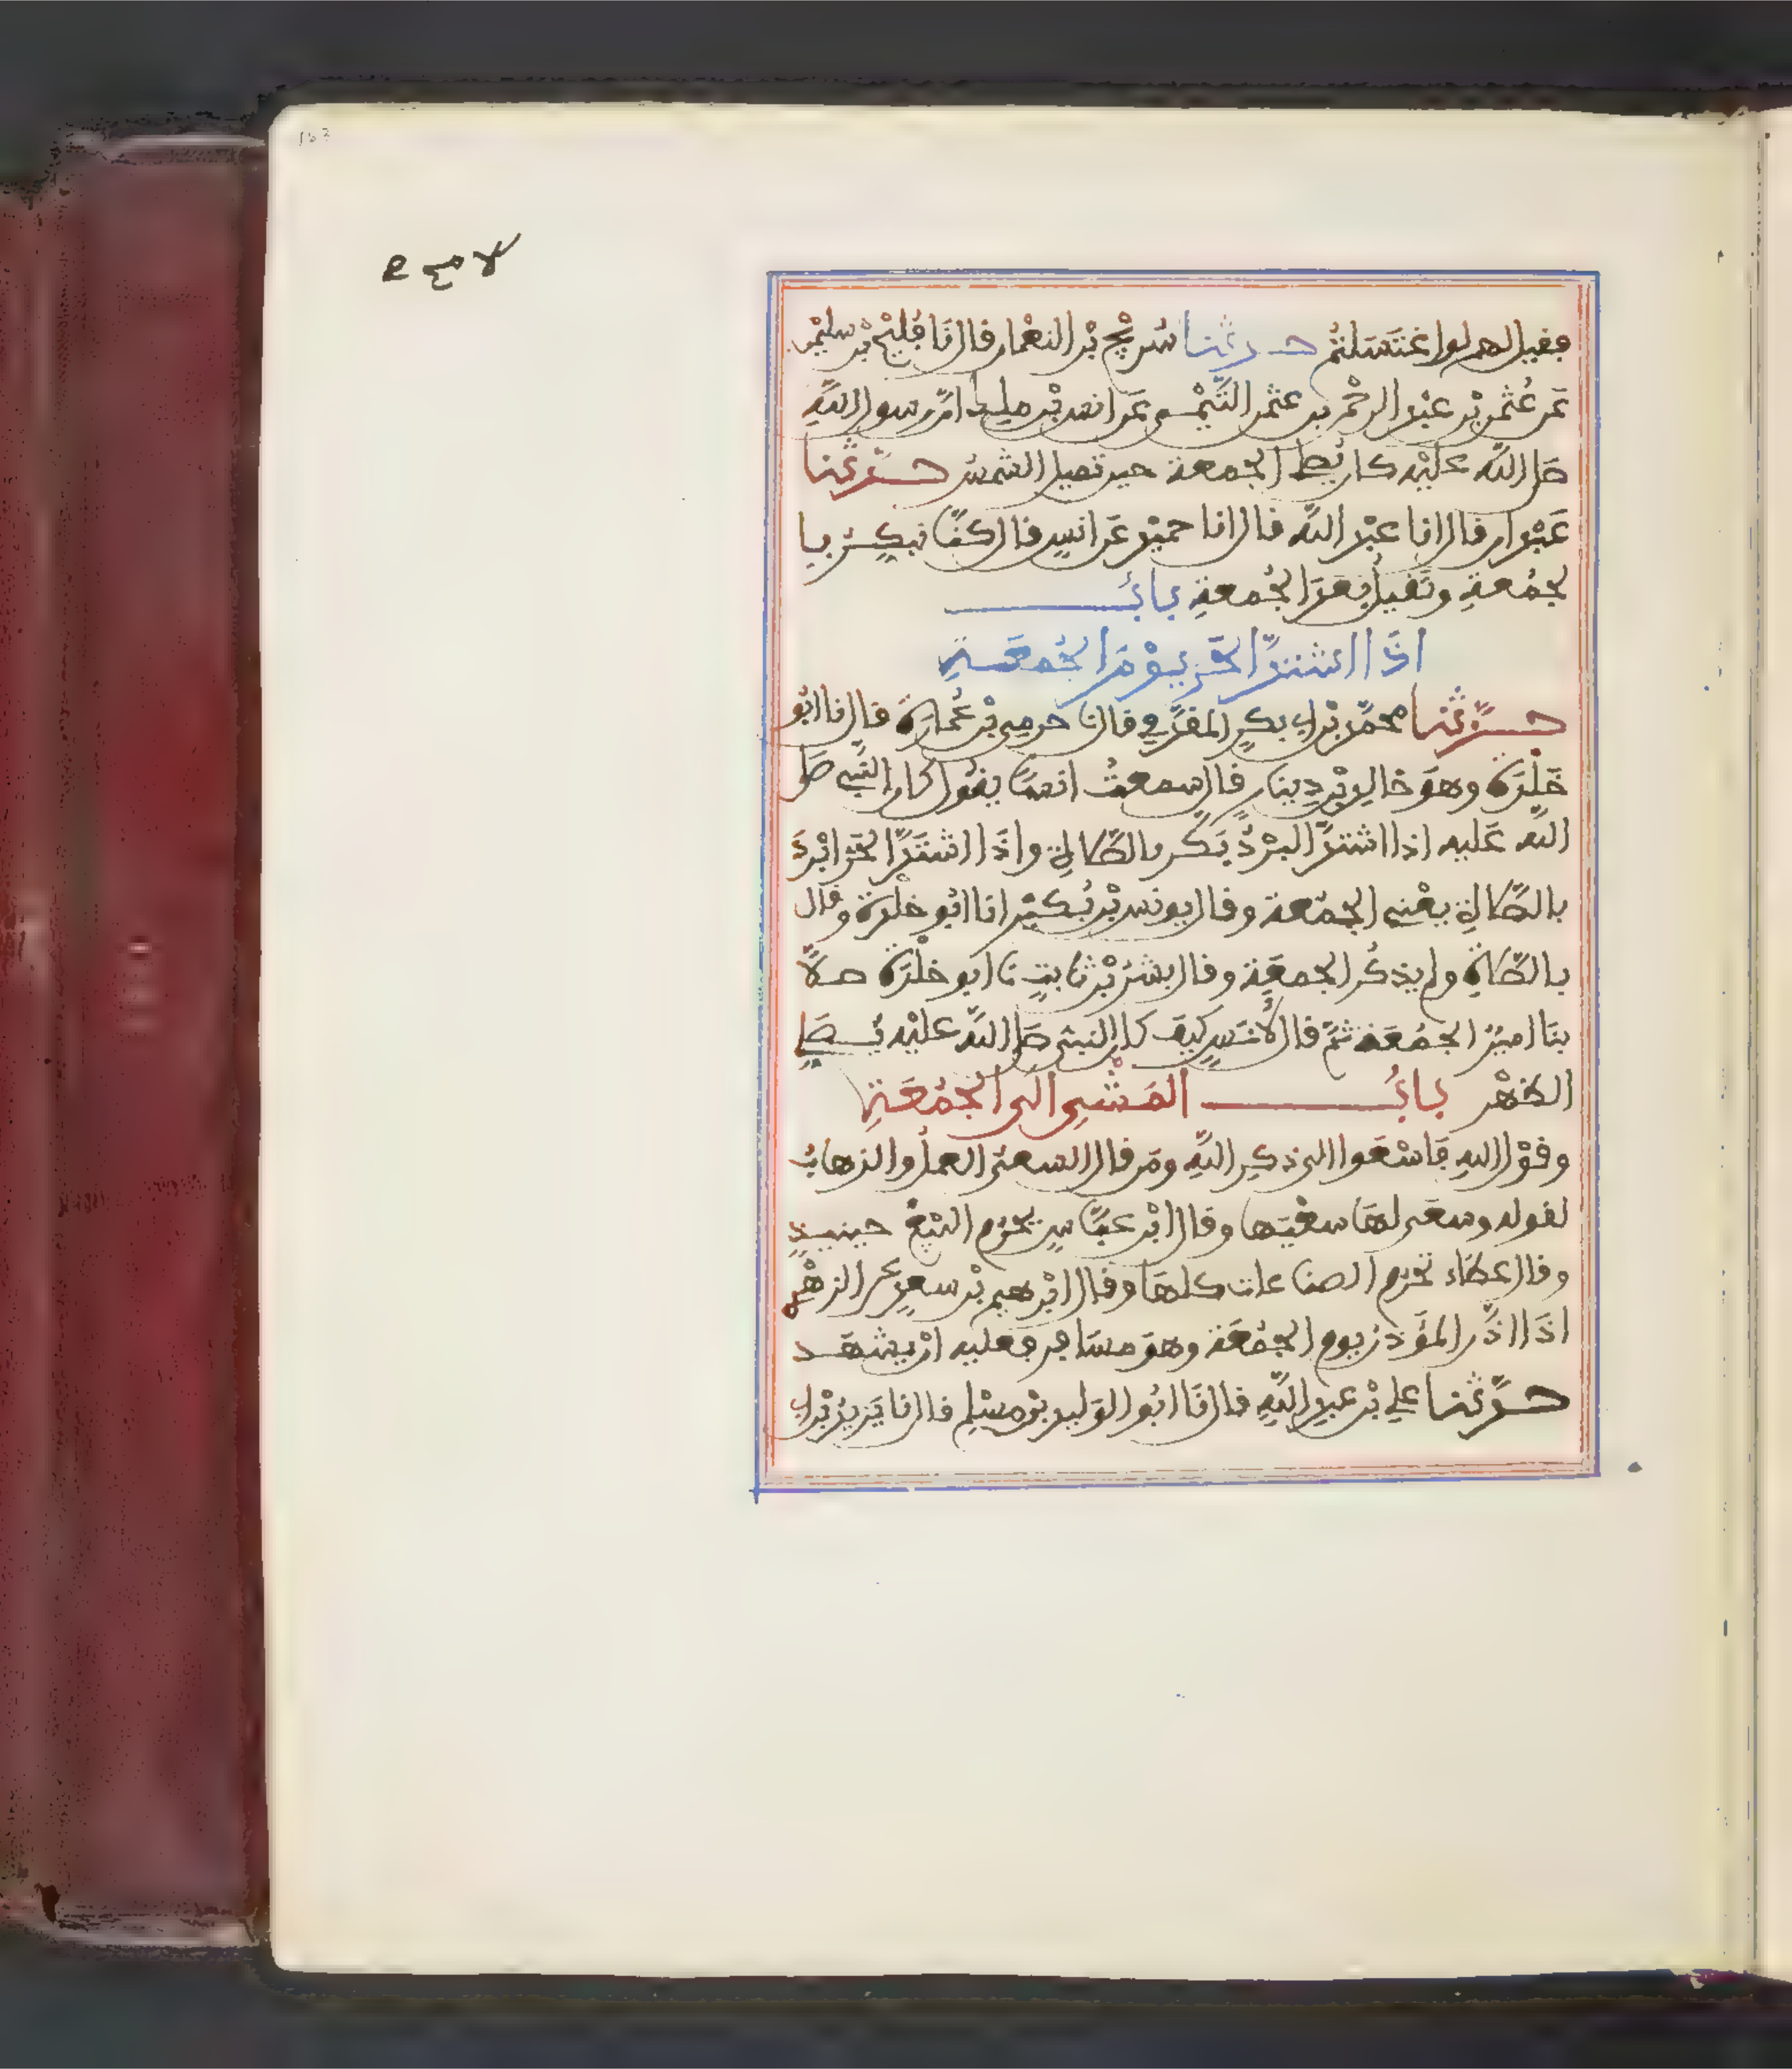 فقيل لهم لو اغتسلتم حدثنا سُريْج بْن النعْمان قال نَا فُليْح بْن سليْمٰن
عَن عُثمٰن بْن عبْد الرحْمٰن بن عثمٰن التَّيْمي عَن انس بْن ملك انّ رسول اللّه
صلى اللّه عليْه كان يُصلي الجمعة حين تميل الشمسُ حدّثنا
عَبْدان قال انا عبْد اللّه قال انا حميْد عَن انسٍ قال كنَّا نبكّر با
لجمُعةِ ونَقيلُ بعْدَ الجُمعةِ بابُ
اذَا اشتدَّ الحَرّ يوْمَ الجُمعَةِ
حدّثنا محمّد بْن ابي بكرٍ المقدَّمي قال نا حرمي بْن عُمارَة قال نا ابُو
خَلْدَة وهوَ خالد بْن دِينار قال سمعتُ انسًا يقُول كان النَّبي صلى
اللّه عَليه اذا اشتدَّ البرْدُ بَكَّر بالصَّلاةِ واذَا اشتَدَّ الحَرّ ابْردَ
بالصَّلاةِ يعْني الجمُعَة وقال يونس بْن بُكيْر انا ابُو خلْدة وقال
بالصَّلاةِ ولم يذكُر الجمعَة وقال بشرُ بْن ثابتٍ نَا ابو خلْدَة صلَّى
بنَا اميرُ الجَمُعَة ثمَّ قال لأَنَسٍ كيفَ كان النبيّ صلى اللّه عليْه يُصَلي
الظهْر بابُ المَشْيِ الى الجُمُعَةِ
وقوْل اللهِ فَاسْعَوا الى ذكِر اللَّه ومَن قال السعيُ العملُ والذهابُ
لقوله وسعَى لهَا سعْيَها وقال ابْن عبَّاسٍ يحْرُم البَيْعُ حينيذٍ
وقال عطَاء تحْرُم الصناعات كلهَا وقال ابْرهيم بْن سعدٍ عن الزهْري
اذَا اذّن المؤَذن يوم الجمُعَة وهوَ مسَافِر فعليه انْ يشهَد
حدَّثنا علي بْن عبد اللَّهِ قال نَا ابُو الوَليد بْن مسْلِم قال نا يَزيدُ بْن ابي